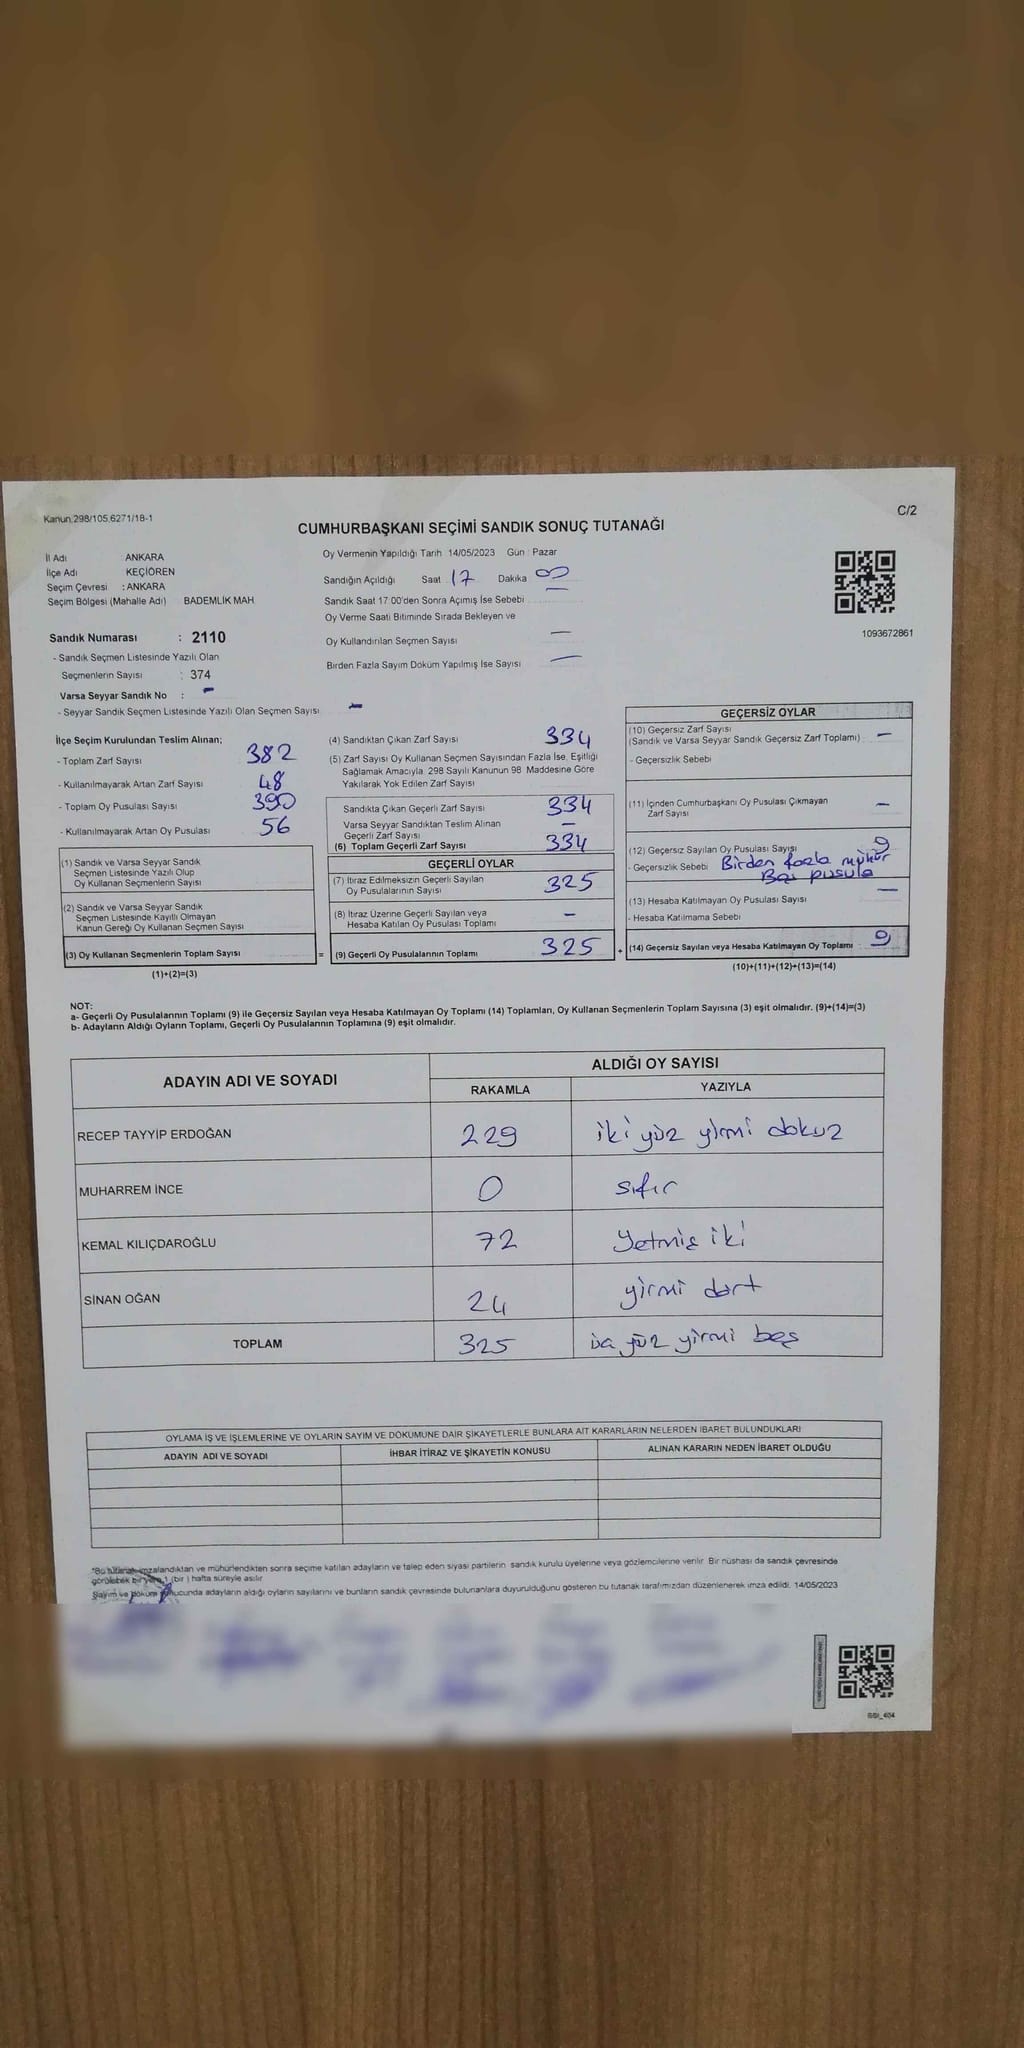 Kanun,298/105,6271/18-1
C/2
CUMHURBAŞKANI SEÇİMİ SANDIK SONUÇ TUTANAĞI
İl Adı : ANKARA
İlçe Adı : KEÇİÖREN
Seçim Çevresi : ANKARA
Seçim Bölgesi (Mahalle Adı) BADEMLİK MAH
Sandık Numarası : 2110
- Sandık Seçmen Listesinde Yazılı Olan
Seçmenlerin Sayısı : 374
Varsa Seyyar Sandık No : -
- Seyyar Sandık Seçmen Listesinde Yazılı Olan Seçmen Sayısı -
Oy Vermenin Yapıldığı Tarih 14/05/2023 Gün : Pazar
Sandığın Açıldığı Saat 17 Dakika 00
Sandık Saat 17 00'den Sonra Açımış İse Sebebi —
Oy Verme Saati Bitiminde Sırada Bekleyen ve
Oy Kullandırılan Seçmen Sayısı —
Birden Fazla Sayım Döküm Yapılmış İse Sayısı —
1093672861
İlçe Seçim Kurulundan Teslim Alınan;
- Toplam Zarf Sayısı 382
- Kullanılmayarak Artan Zarf Sayısı 48
- Toplam Oy Pusulası Sayısı 390
- Kullanılmayarak Artan Oy Pusulası 56
(1) Sandık ve Varsa Seyyar Sandık
Seçmen Listesinde Yazılı Olup
Oy Kullanan Seçmenlerin Sayısı
(2) Sandık ve Varsa Seyyar Sandık
Seçmen Listesinde Kayıtlı Olmayan
Kanun Gereği Oy Kullanan Seçmen Sayısı
(3) Oy Kullanan Seçmenlerin Toplam Sayısı =
(1)+(2)=(3)
(4) Sandıktan Çıkan Zarf Sayısı 334
(5) Zarf Sayısı Oy Kullanan Seçmen Sayısından Fazla İse, Eşitliği
Sağlamak Amacıyla, 298 Sayılı Kanunun 98 Maddesine Göre
Yakılarak Yok Edilen Zarf Sayısı
Sandıkta Çıkan Geçerli Zarf Sayısı 334
Varsa Seyyar Sandıktan Teslim Alınan
Geçerli Zarf Sayısı —
(6) Toplam Geçerli Zarf Sayısı 334
GEÇERLİ OYLAR
(7) İtiraz Edilmeksizin Geçerli Sayılan
Oy Pusulalarının Sayısı 325
(8) İtiraz Üzerine Geçerli Sayılan veya
Hesaba Katılan Oy Pusulası Toplamı -
(9) Geçerli Oy Pusulalarının Toplamı 325 +
GEÇERSİZ OYLAR
(10) Geçersiz Zarf Sayısı
(Sandık ve Varsa Seyyar Sandık Geçersiz Zarf Toplamı) -
- Geçersizlik Sebebi
(11) İçinden Cumhurbaşkanı Oy Pusulası Çıkmayan
Zarf Sayısı -
(12) Geçersiz Sayılan Oy Pusulası Sayısı 9
- Geçersizlik Sebebi Birden fazla mühür
Boş pusula
(13) Hesaba Katılmayan Oy Pusulası Sayısı —
- Hesaba Katılmama Sebebi
(14) Geçersiz Sayılan veya Hesaba Katılmayan Oy Toplamı : 9
(10)+(11)+(12)+(13)=(14)
NOT:
a- Geçerli Oy Pusulalarının Toplamı (9) ile Geçersiz Sayılan veya Hesaba Katılmayan Oy Toplamı (14) Toplamları, Oy Kullanan Seçmenlerin Toplam Sayısına (3) eşit olmalıdır. (9)+(14)=(3)
b- Adayların Aldığı Oyların Toplamı, Geçerli Oy Pusulalarının Toplamına (9) eşit olmalıdır.
ADAYIN ADI VE SOYADI ALDIĞI OY SAYISI
RAKAMLA YAZIYLA
RECEP TAYYİP ERDOĞAN 229 iki yüz yirmi dokuz
MUHARREM İNCE 0 sıfır
KEMAL KILIÇDAROĞLU 72 Yetmiş iki
SİNAN OĞAN 24 yirmi dört
TOPLAM 325 üç yüz yirmi beş
OYLAMA İŞ VE İŞLEMLERİNE VE OYLARIN SAYIM VE DÖKÜMÜNE DAİR ŞİKAYETLERLE BUNLARA AİT KARARLARIN NELERDEN İBARET BULUNDUKLARI
ADAYIN ADI VE SOYADI İHBAR İTİRAZ VE ŞİKAYETİN KONUSU ALINAN KARARIN NEDEN İBARET OLDUĞU
*Bu tutanak imzalandıktan ve mühürlendikten sonra seçime katılan adayların ve talep eden siyasi partilerin sandık kurulu üyelerine veya gözlemcilerine verilir Bir nüshası da sandık çevresinde
görülebilek bir yere 1 (bir ) hafta süreyle asılır
Sayım ve döküm sonucunda adayların aldığı oyların sayılarını ve bunların sandık çevresinde bulunanlara duyurulduğunu gösteren bu tutanak tarafımızdan düzenlenerek imza edildi. 14/05/2023